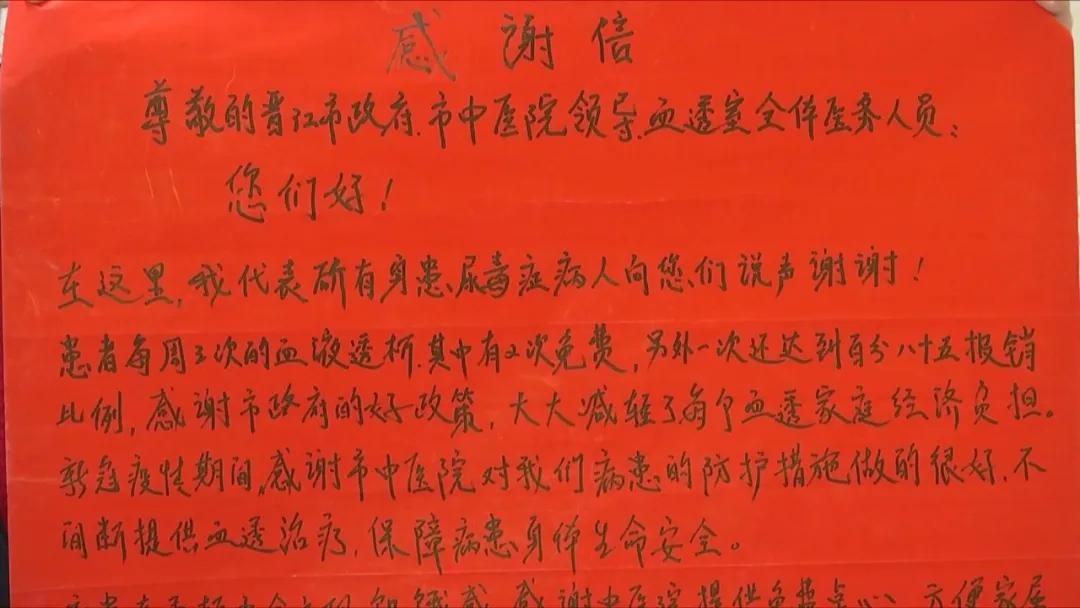 感谢信
尊敬的晋江市政府.市中医院领导.血透室全体医务人员:
您们好!
在这里,我代表所有身患尿毒症病人向您们说声谢谢!
患者每周3次的血液透析.其中有2次免费,另外一次还达到百分八十五报销
比例,感谢市政府的好政策,大大减轻了每个血透家庭经济负担。
新冠疫情期间,感谢市中医院对我们病患的防护措施做的很好.不
间断提供血透治疗,保障病患身体生命安全。
饥饿感.感谢中医院提供免费点心.方便家属